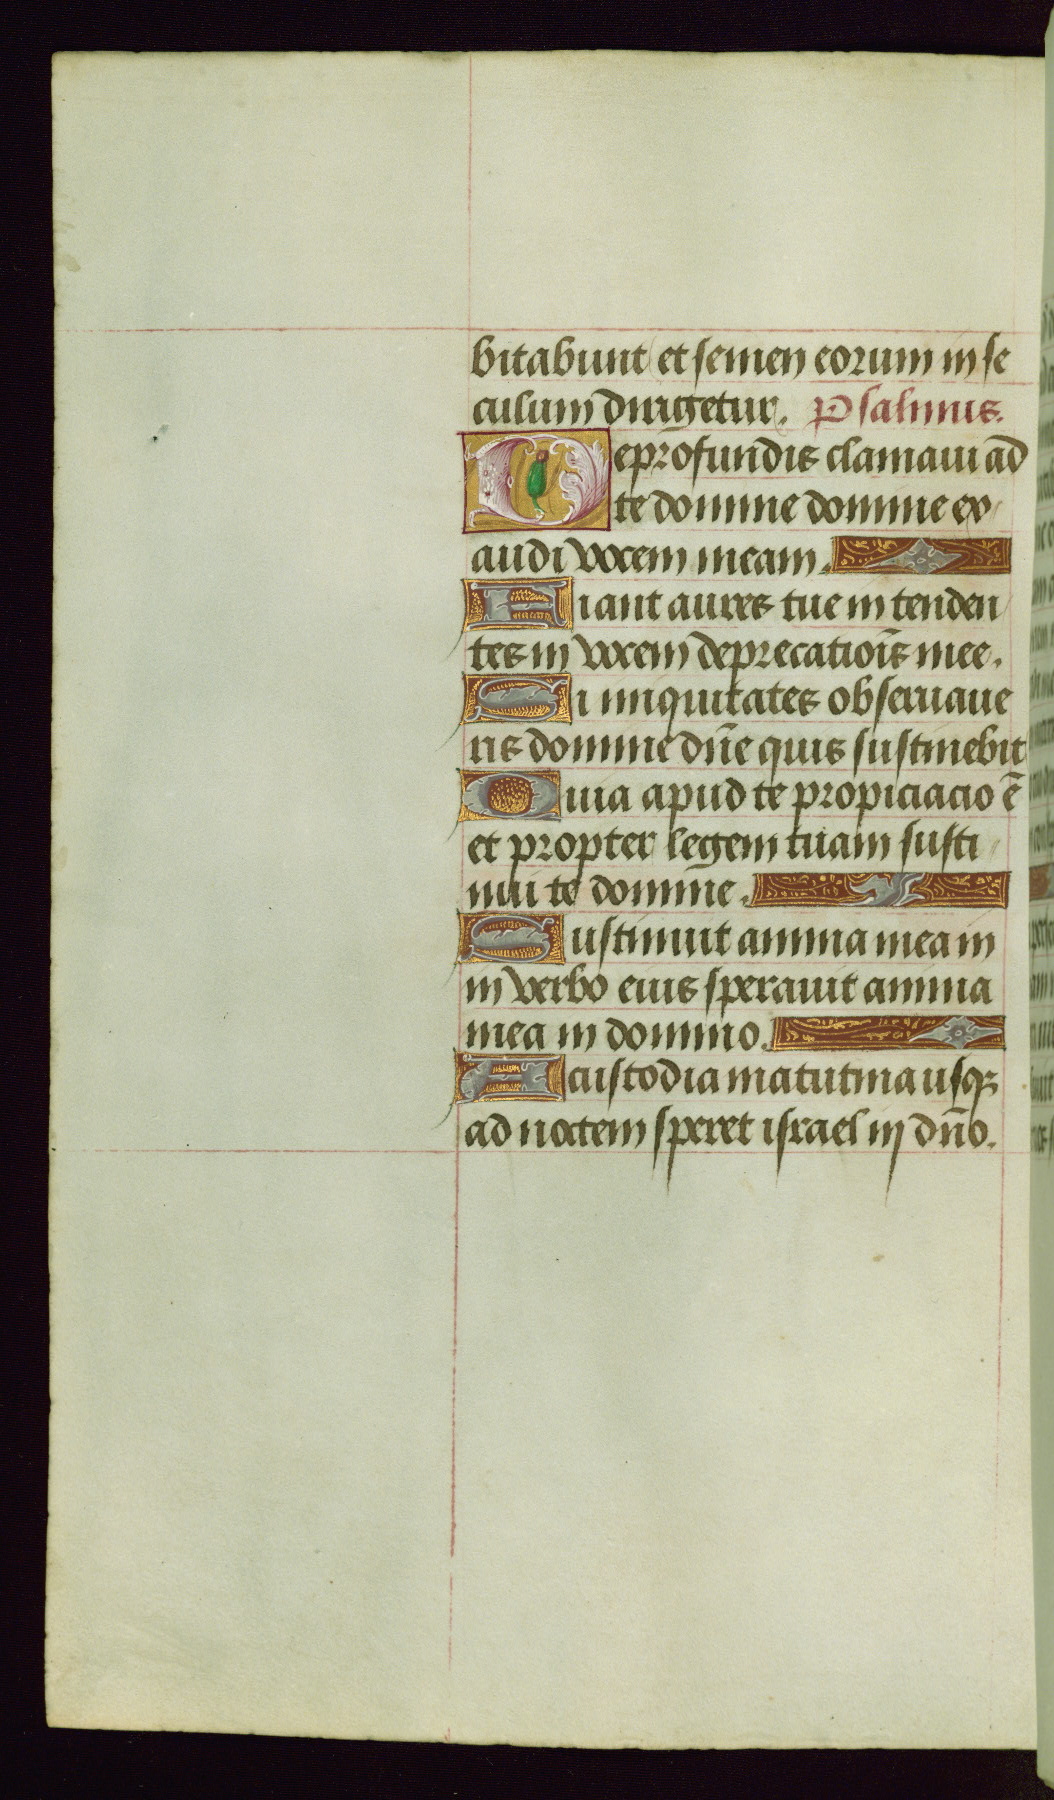 bitabunt et semen eorum in se
culum dirigetur. Psalmus.
De profundis clamaui ad
te domine domine ex
audi vocem meam.
Fiant aures tue in tenden
tes in vocem deprecatiois mee.
Si iniquitates obseruaue
ris domine dne quis sustinebit
Quia apud te propiciacio ē
et propter legem tuam susti
nui te domine.
Sustinuit anima mea in
in verbo eius sperauit anima
mea in domino.
A custodia matutina usqꝫ
ad noctem speret israel in dno.